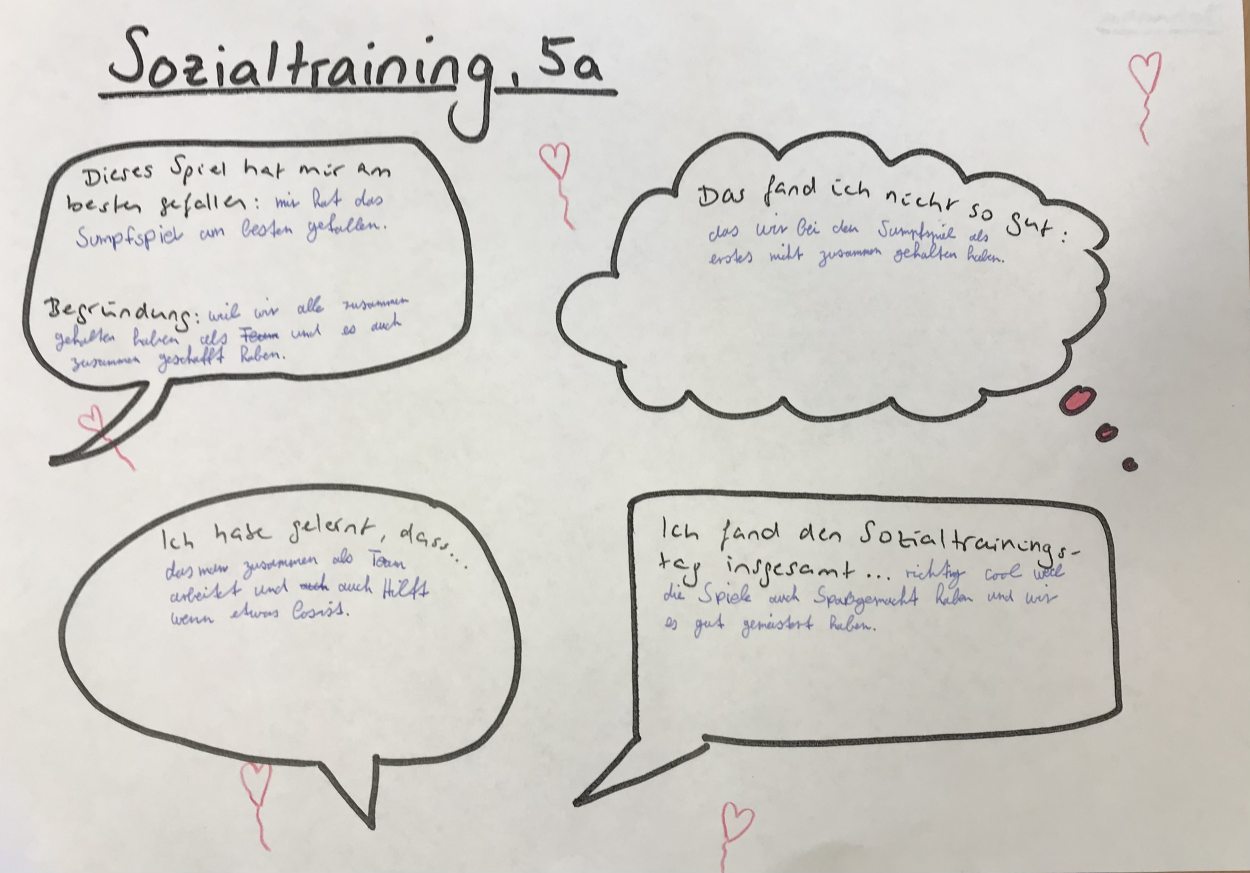 Sozialtraining, 5a
Dieses Spiel hat mir am
besten gefallen: mir hat das
Sumpfspiel am besten gefallen.
Begründung: weil wir alle zusammen
gehalten haben als Team und es auch
zusammen geschafft haben.
Das fand ich nicht so gut:
das wir bei den Sumpfspiel als
erstes nicht zusammen gehalten haben.
Ich habe gelernt, dass...
das man zusammen als Team
arbeitet und auch auch Hilft
wenn etwas losist.
Ich fand den Sozialtrainings-
tag insgesamt... richtig cool weil
die Spiele auch Spaßgemacht haben und wir
es gut gemeistert haben.